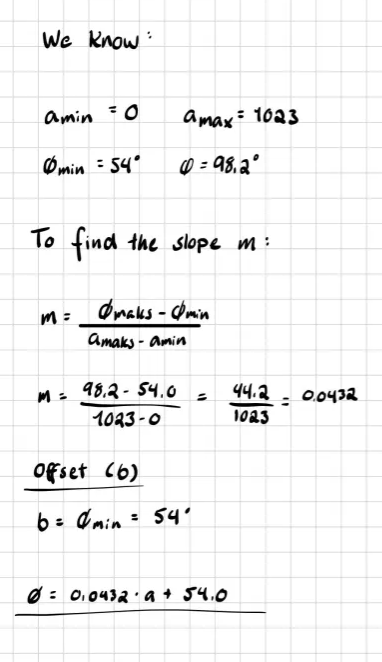 We know:
amin = 0 amax = 1023
Ømin = 54° Ø = 98,2°
To find the slope m:
m = Ømaks - Ømin / amaks - amin
m = 98.2 - 54.0 / 1023 - 0 = 44.2 / 1023 = 0.0432
Offset (b)
b = Ømin = 54°
Ø = 0,0432 · a + 54,0